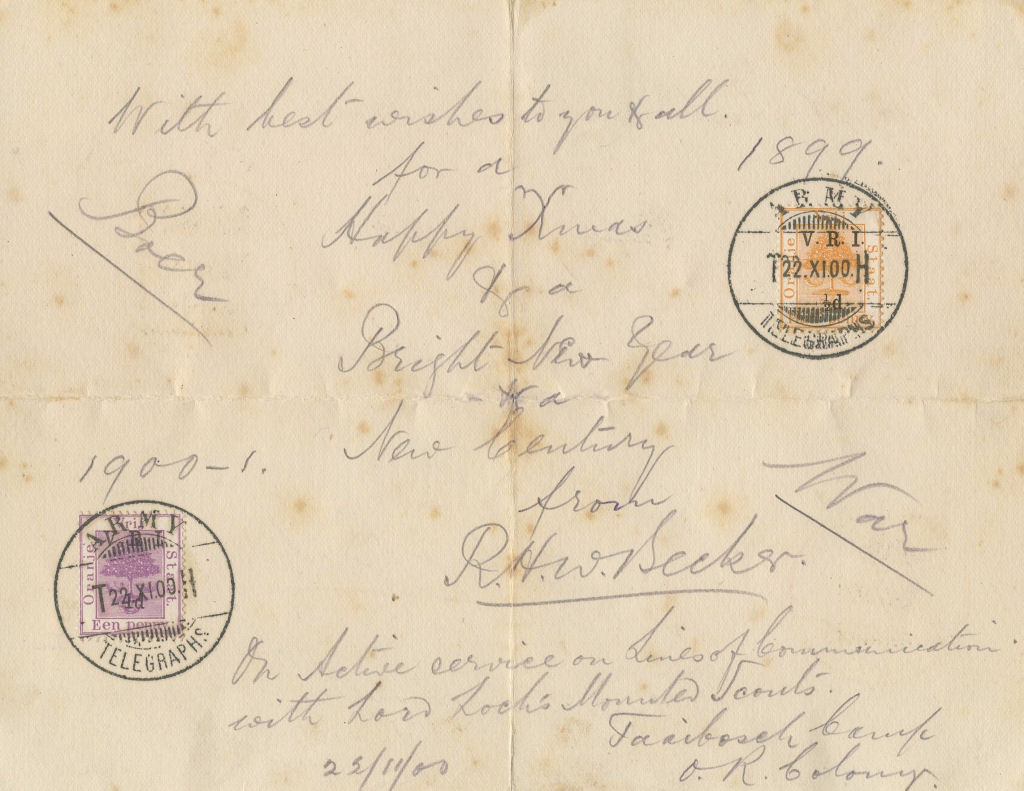 With best wishes to you & all.
for a
1899.
Boer
Happy Xmas
& a
Bright New Year
& a
New Century
1900-1.
from
War
R.H.W. Becker.
On Active service on Lines of Communication.
with Lord Loch's Mounted Scouts.
Taaibosch Camp
22/11/00
O. R. Colony.
ARMY
V.R.I.
T 22.XI.00. H
Oranje
Staat.
½d
TELEGRAPHS
ARMY
Vrij
Oranje
Staat.
T 22.XI.00 H
1d
Een penny
TELEGRAPHS